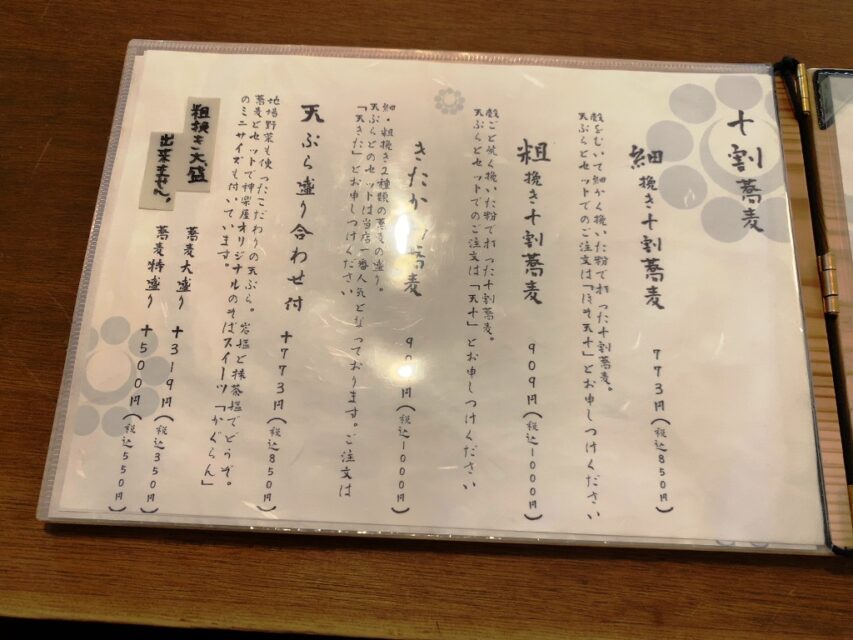 十割蕎麦
細挽き十割蕎麦 773円(税込850円)
殻をむいて細かく挽いた粉で打った十割蕎麦。
天ぷらとセットでのご注文は「ほそ天十」とお申しつけください
粗挽き十割蕎麦 909円(税込1000円)
殻ごと粗く挽いた粉で打った十割蕎麦。
天ぷらとセットでのご注文は「天十」とお申しつけください
きたか 蕎麦 90 円(税込1000円)
細・粗挽き2種類の蕎麦の盛り。
天ぷらとのセットは当店一番人気となっております。ご注文は
「天きた」とお申しつけください
天ぷら盛り合わせ付 +773円(税込850円)
地場野菜も使ったこだわりの天ぷら。岩塩と抹茶塩でどうぞ。
蕎麦とセットで神楽屋オリジナルのそばスイーツ「かぐらん」
のミニサイズも付いています。
蕎麦大盛り +319円(税込350円)
蕎麦特盛り +500円(税込550円)
粗挽き大盛
出来ません。